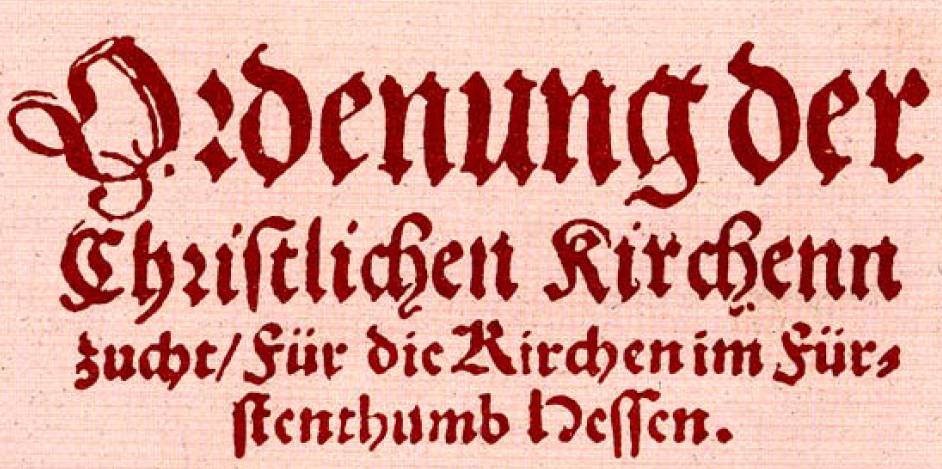 Ordenung der
Christlichen Kirchenn
zucht/ Für die Kirchen im Für⸗
stenthumb Hessen.